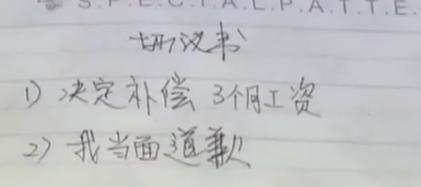 S.P.E.C.I.A.L.P.A.T.T.E.
议书
1) 决定补偿 3个月工资
2) 我当面道歉